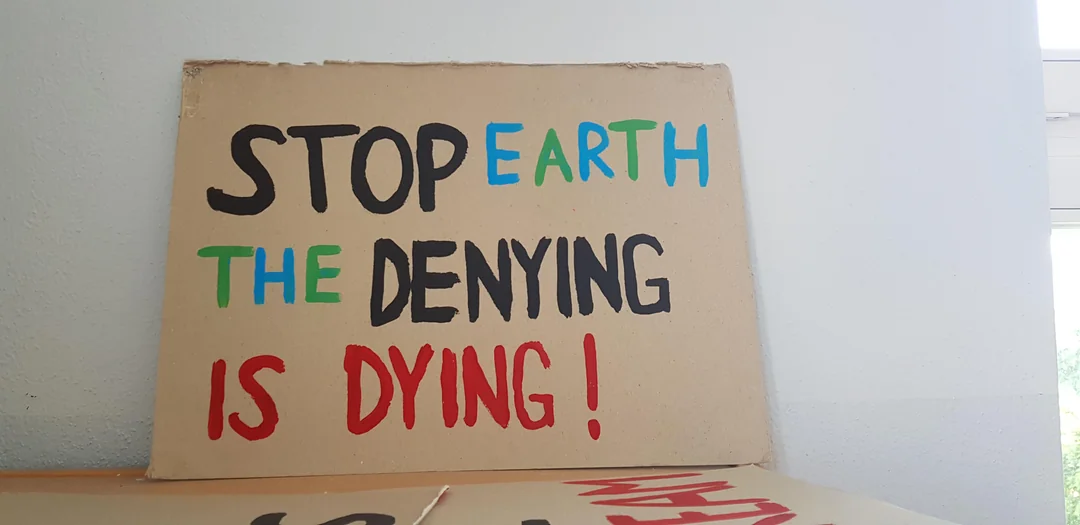 STOP EARTH
THE DENYING
IS DYING!